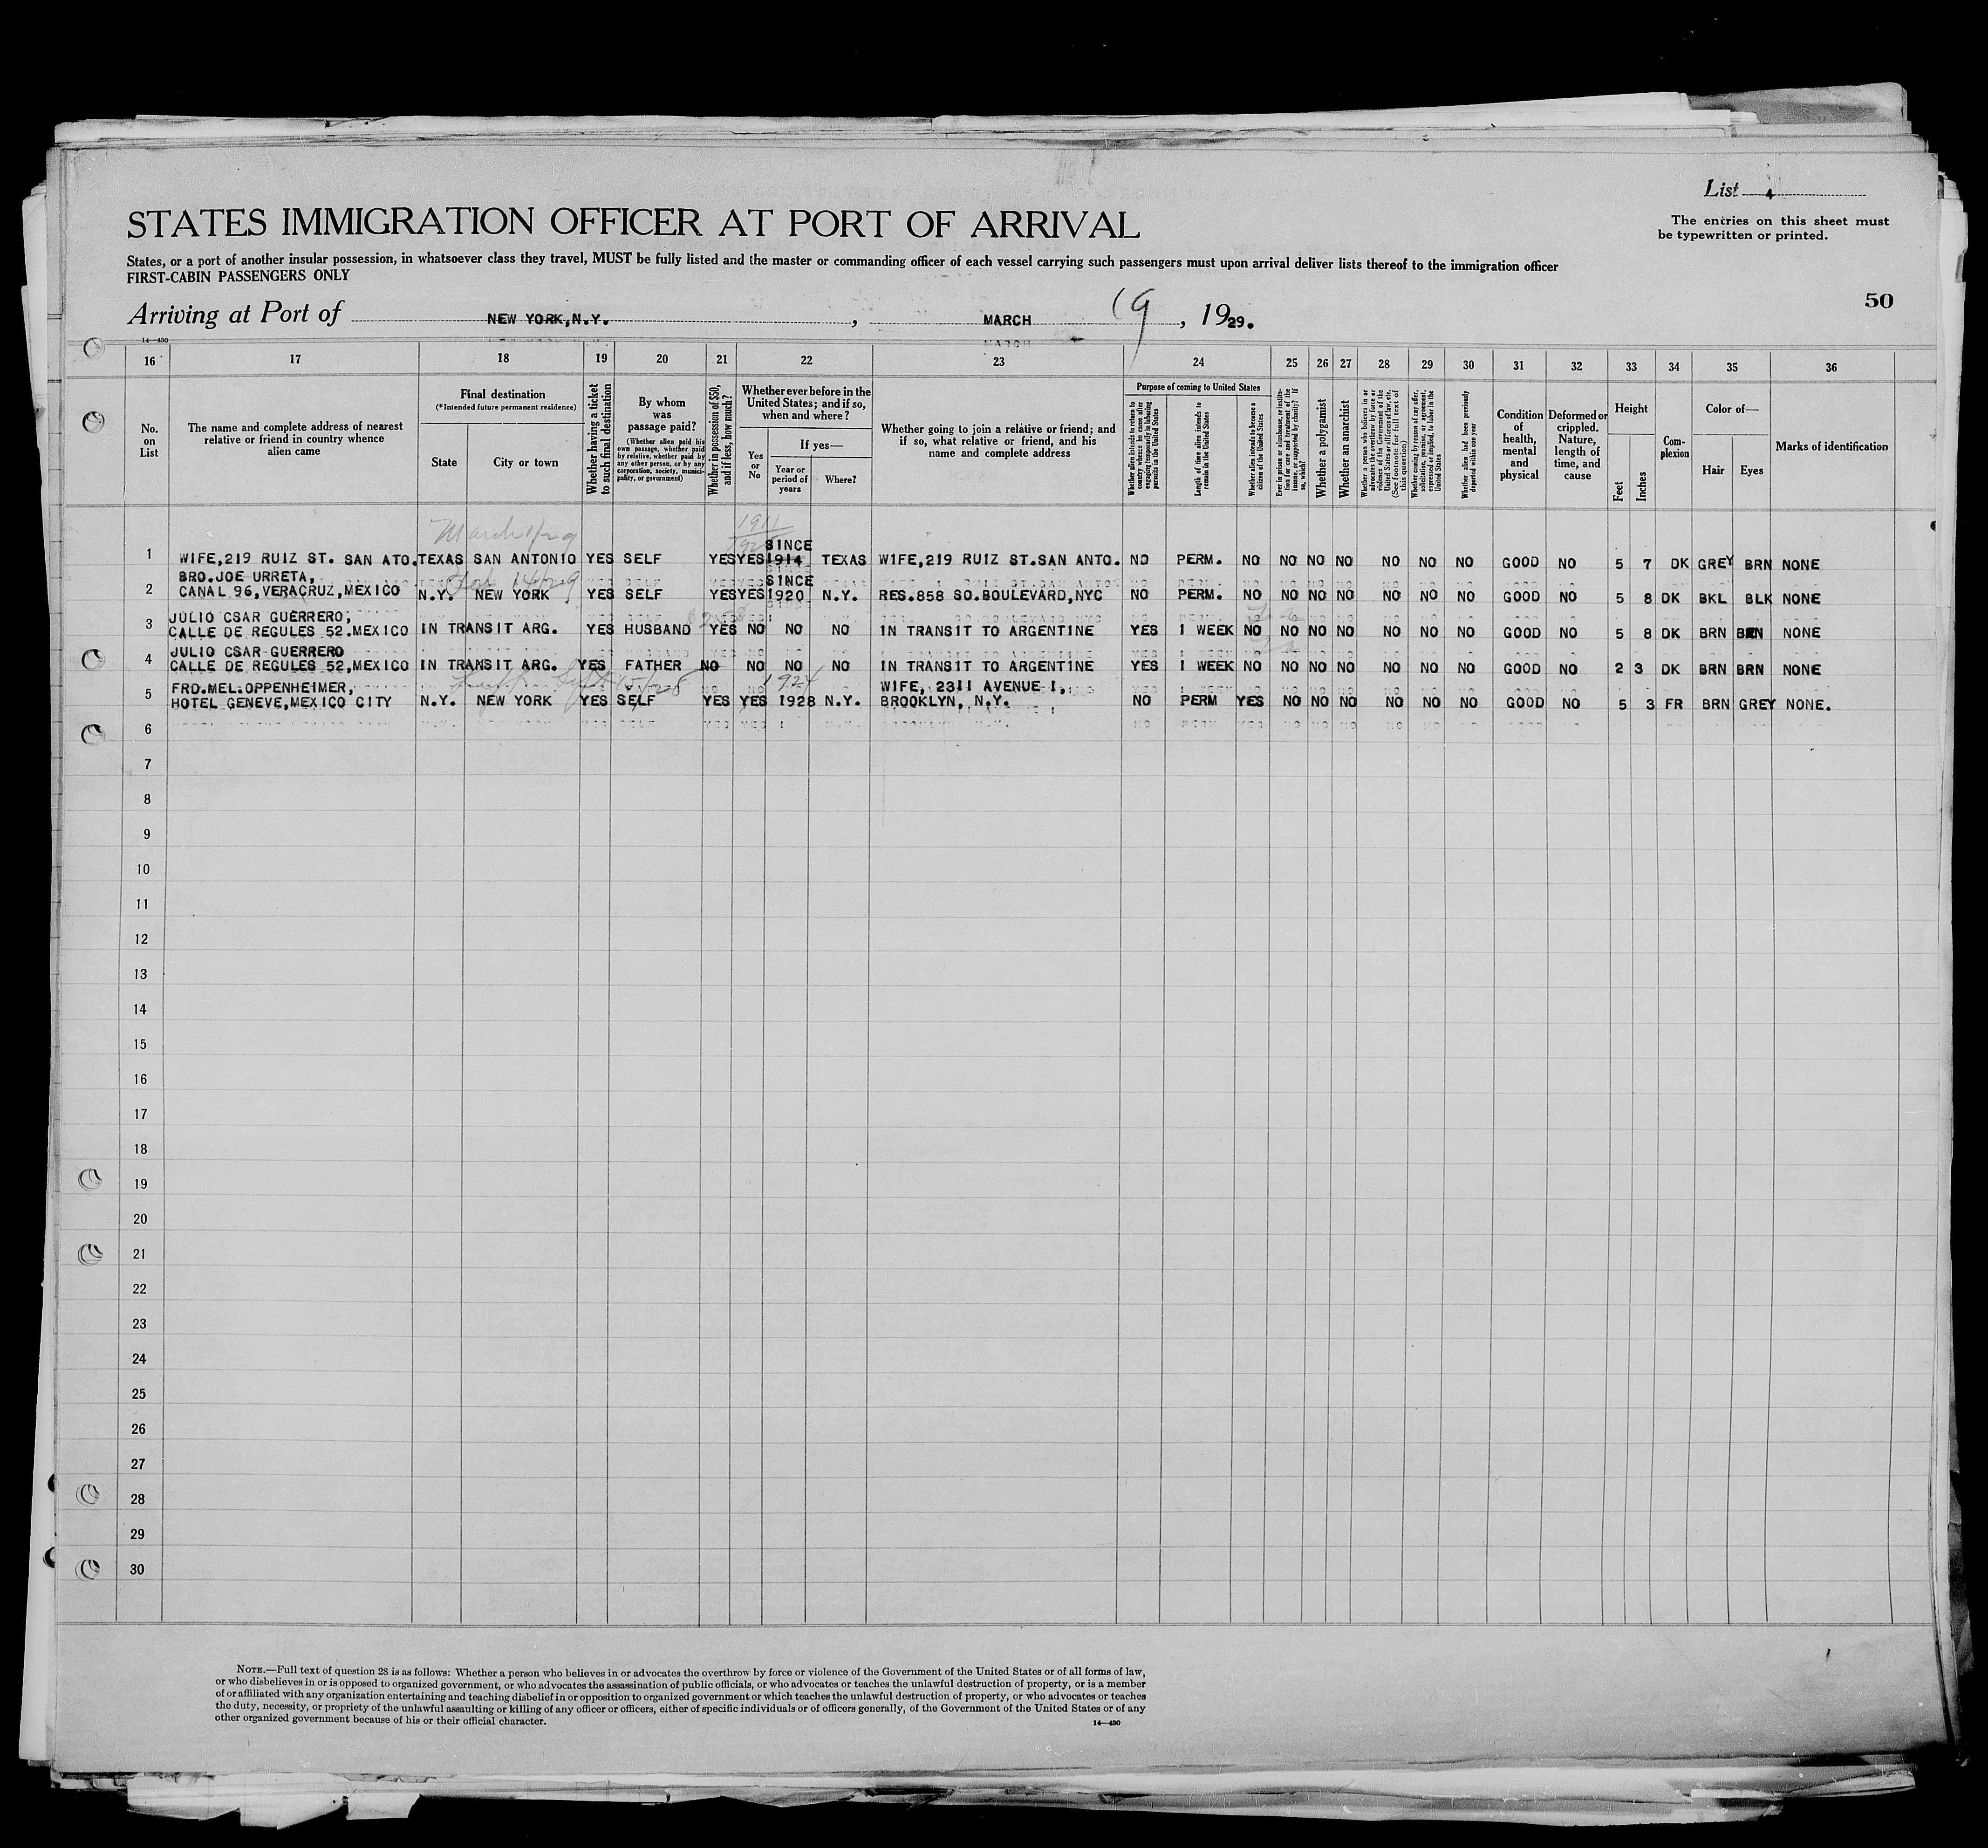 List 4
The entries on this sheet must
be typewritten or printed.
STATES IMMIGRATION OFFICER AT PORT OF ARRIVAL
States, or a port of another insular possession, in whatsoever class they travel, MUST be fully listed and the master or commanding officer of each vessel carrying such passengers must upon arrival deliver lists thereof to the immigration officer
FIRST-CABIN PASSENGERS ONLY
50
Arriving at Port of NEW YORK,N.Y. , MARCH 19 , 1929.
14—430
16 17 18 19 20 21 22 23 24 25 26 27 28 29 30 31 32 33 34 35 36
No. on List
The name and complete address of nearest relative or friend in country whence alien came
Final destination
(*Intended future permanent residence)
State
City or town
Whether having a ticket to such final destination
By whom was passage paid?
(Whether alien paid his own passage, whether paid by relative, whether paid by any other person, or by any corporation, society, municipality, or government)
Whether in possession of $50, and if less, how much?
Whether ever before in the United States; and if so, when and where?
Yes or No
If yes—
Year or period of years
Where?
Whether going to join a relative or friend; and if so, what relative or friend, and his name and complete address
Purpose of coming to United States
Whether alien intends to return to country whence he came after engaging temporarily in laboring pursuits in the United States
Length of time alien intends to remain in the United States
Whether alien intends to become a citizen of the United States
Ever in prison or almshouse, or institution for care and treatment of the insane, or supported by charity? If so, which?
Whether a polygamist
Whether an anarchist
Whether a person who believes in or advocates the overthrow by force or violence of the Government of the United States or all forms of law, etc. (See footnote for full text of this question)
Whether coming by reason of any offer, solicitation, promise, or agreement, expressed or implied, to labor in the United States
Whether alien had been previously deported within one year
Condition of health, mental and physical
Deformed or crippled. Nature, length of time, and cause
Height
Feet
Inches
Complexion
Color of—
Hair
Eyes
Marks of identification
March 1/29
1911
SINCE
1 WIFE,219 RUIZ ST. SAN ATO. TEXAS SAN ANTONIO YES SELF YES YES 1914 TEXAS WIFE,219 RUIZ ST.SAN ANTO. NO PERM. NO NO NO NO NO NO NO GOOD NO 5 7 DK GREY BRN NONE
BRO.JOE URRETA, 14/29 SINCE
2 CANAL 96,VERACRUZ,MEXICO N.Y. NEW YORK YES SELF YES YES 1920 N.Y. RES.858 SO.BOULEVARD,NYC NO PERM. NO NO NO NO NO NO NO GOOD NO 5 8 DK BKL BLK NONE
JULIO CSAR GUERRERO,
3 CALLE DE REGULES 52.MEXICO IN TRANSIT ARG. YES HUSBAND YES NO NO NO IN TRANSIT TO ARGENTINE YES 1 WEEK NO NO NO NO NO NO NO GOOD NO 5 8 DK BRN BRN NONE
JULIO CSAR GUERRERO
4 CALLE DE REGULES 52,MEXICO IN TRANSIT ARG. YES FATHER NO NO NO NO IN TRANSIT TO ARGENTINE YES 1 WEEK NO NO NO NO NO NO NO GOOD NO 2 3 DK BRN BRN NONE
FRD.MEL.OPPENHEIMER, Sept 15/28 1924 WIFE, 2311 AVENUE I,
5 HOTEL GENEVE,MEXICO CITY N.Y. NEW YORK YES SELF YES YES 1928 N.Y. BROOKLYN, N.Y. NO PERM YES NO NO NO NO NO NO GOOD NO 5 3 FR BRN GREY NONE.
6
7
8
9
10
11
12
13
14
15
16
17
18
19
20
21
22
23
24
25
26
27
28
29
30
NOTE.—Full text of question 28 is as follows: Whether a person who believes in or advocates the overthrow by force or violence of the Government of the United States or of all forms of law,
or who disbelieves in or is opposed to organized government, or who advocates the assassination of public officials, or who advocates or teaches the unlawful destruction of property, or is a member
of or affiliated with any organization entertaining and teaching disbelief in or opposition to organized government or which teaches the unlawful destruction of property, or who advocates or teaches
the duty, necessity, or propriety of the unlawful assaulting or killing of any officer or officers, either of specific individuals or of officers generally, of the Government of the United States or of any
other organized government because of his or their official character.
14—430